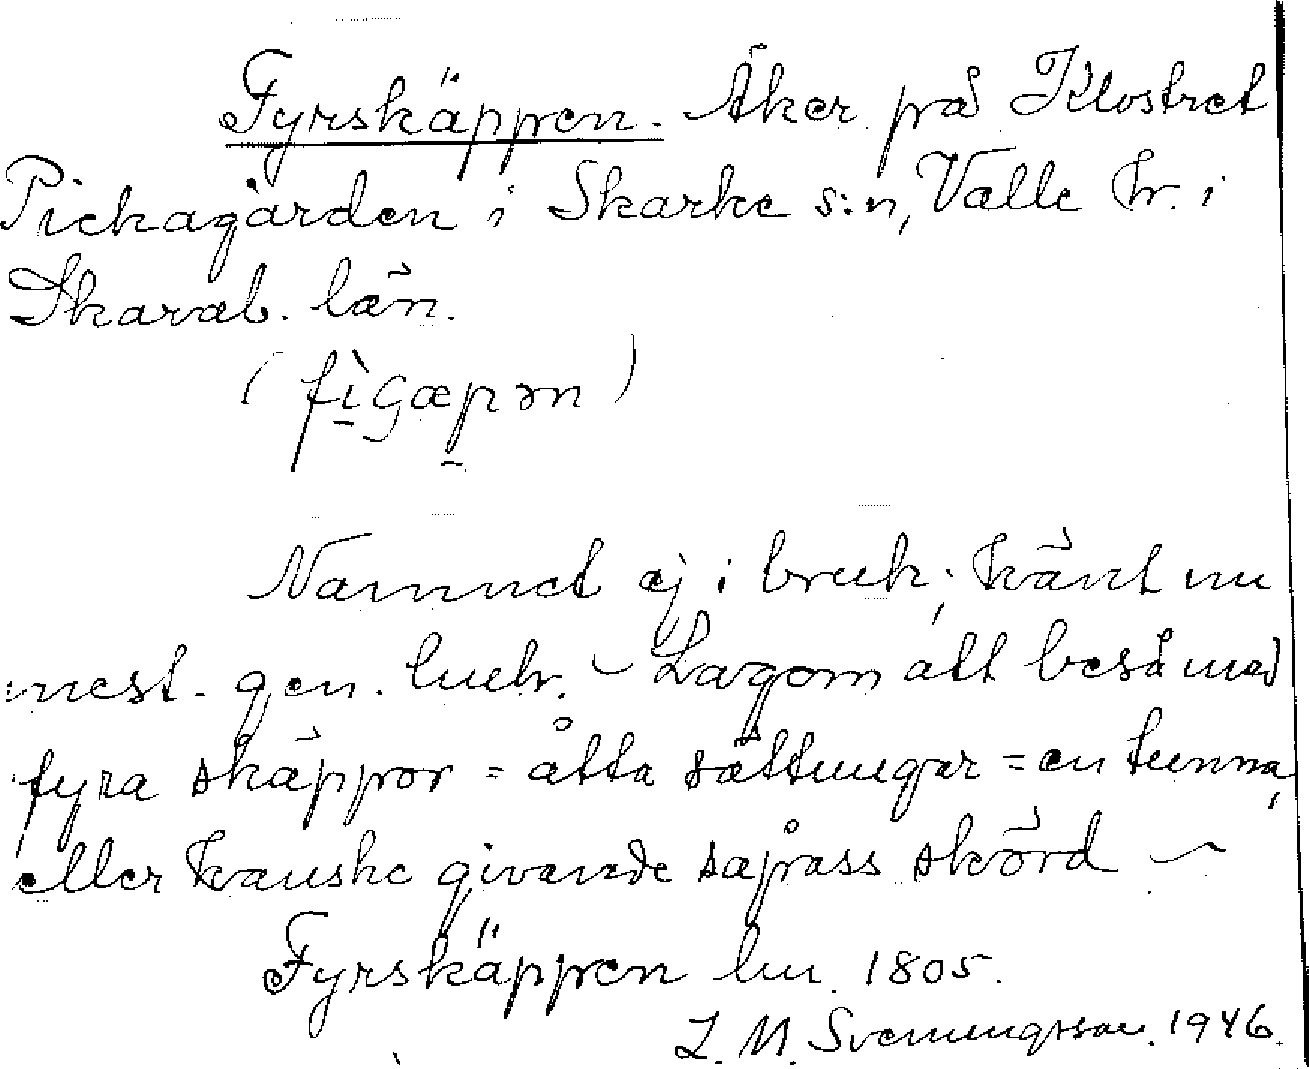 Fyrskäppen. Åker på Klostret
Pickagården i Skarke s:n, Valle hr. i
Skarab. län.
Namnet ej i bruk; känt nu
mest gen. lmhr. – Lagom att beså med
fyra skäppor = åtta sättungar = en tunna,
eller kanske givande såpass skörd –
Fyrskäppen lm. 1805.
L. M. Svenungsson. 1946.